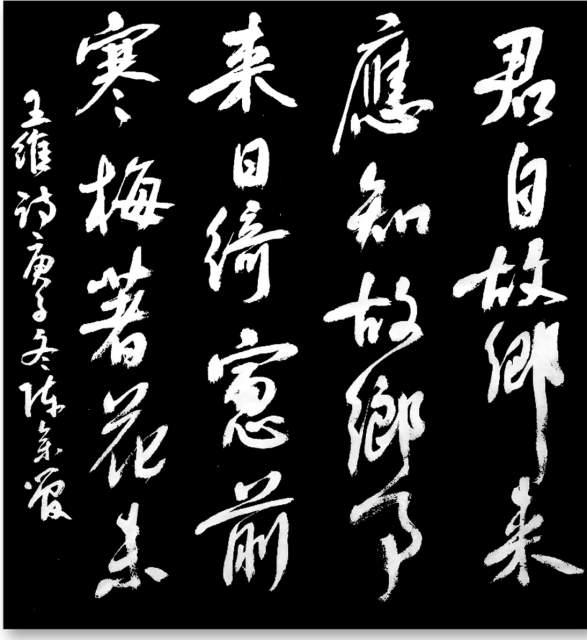 君自故鄉来
應知故鄉事
来日綺窻前
寒梅著花未
王維詩庚子冬陳